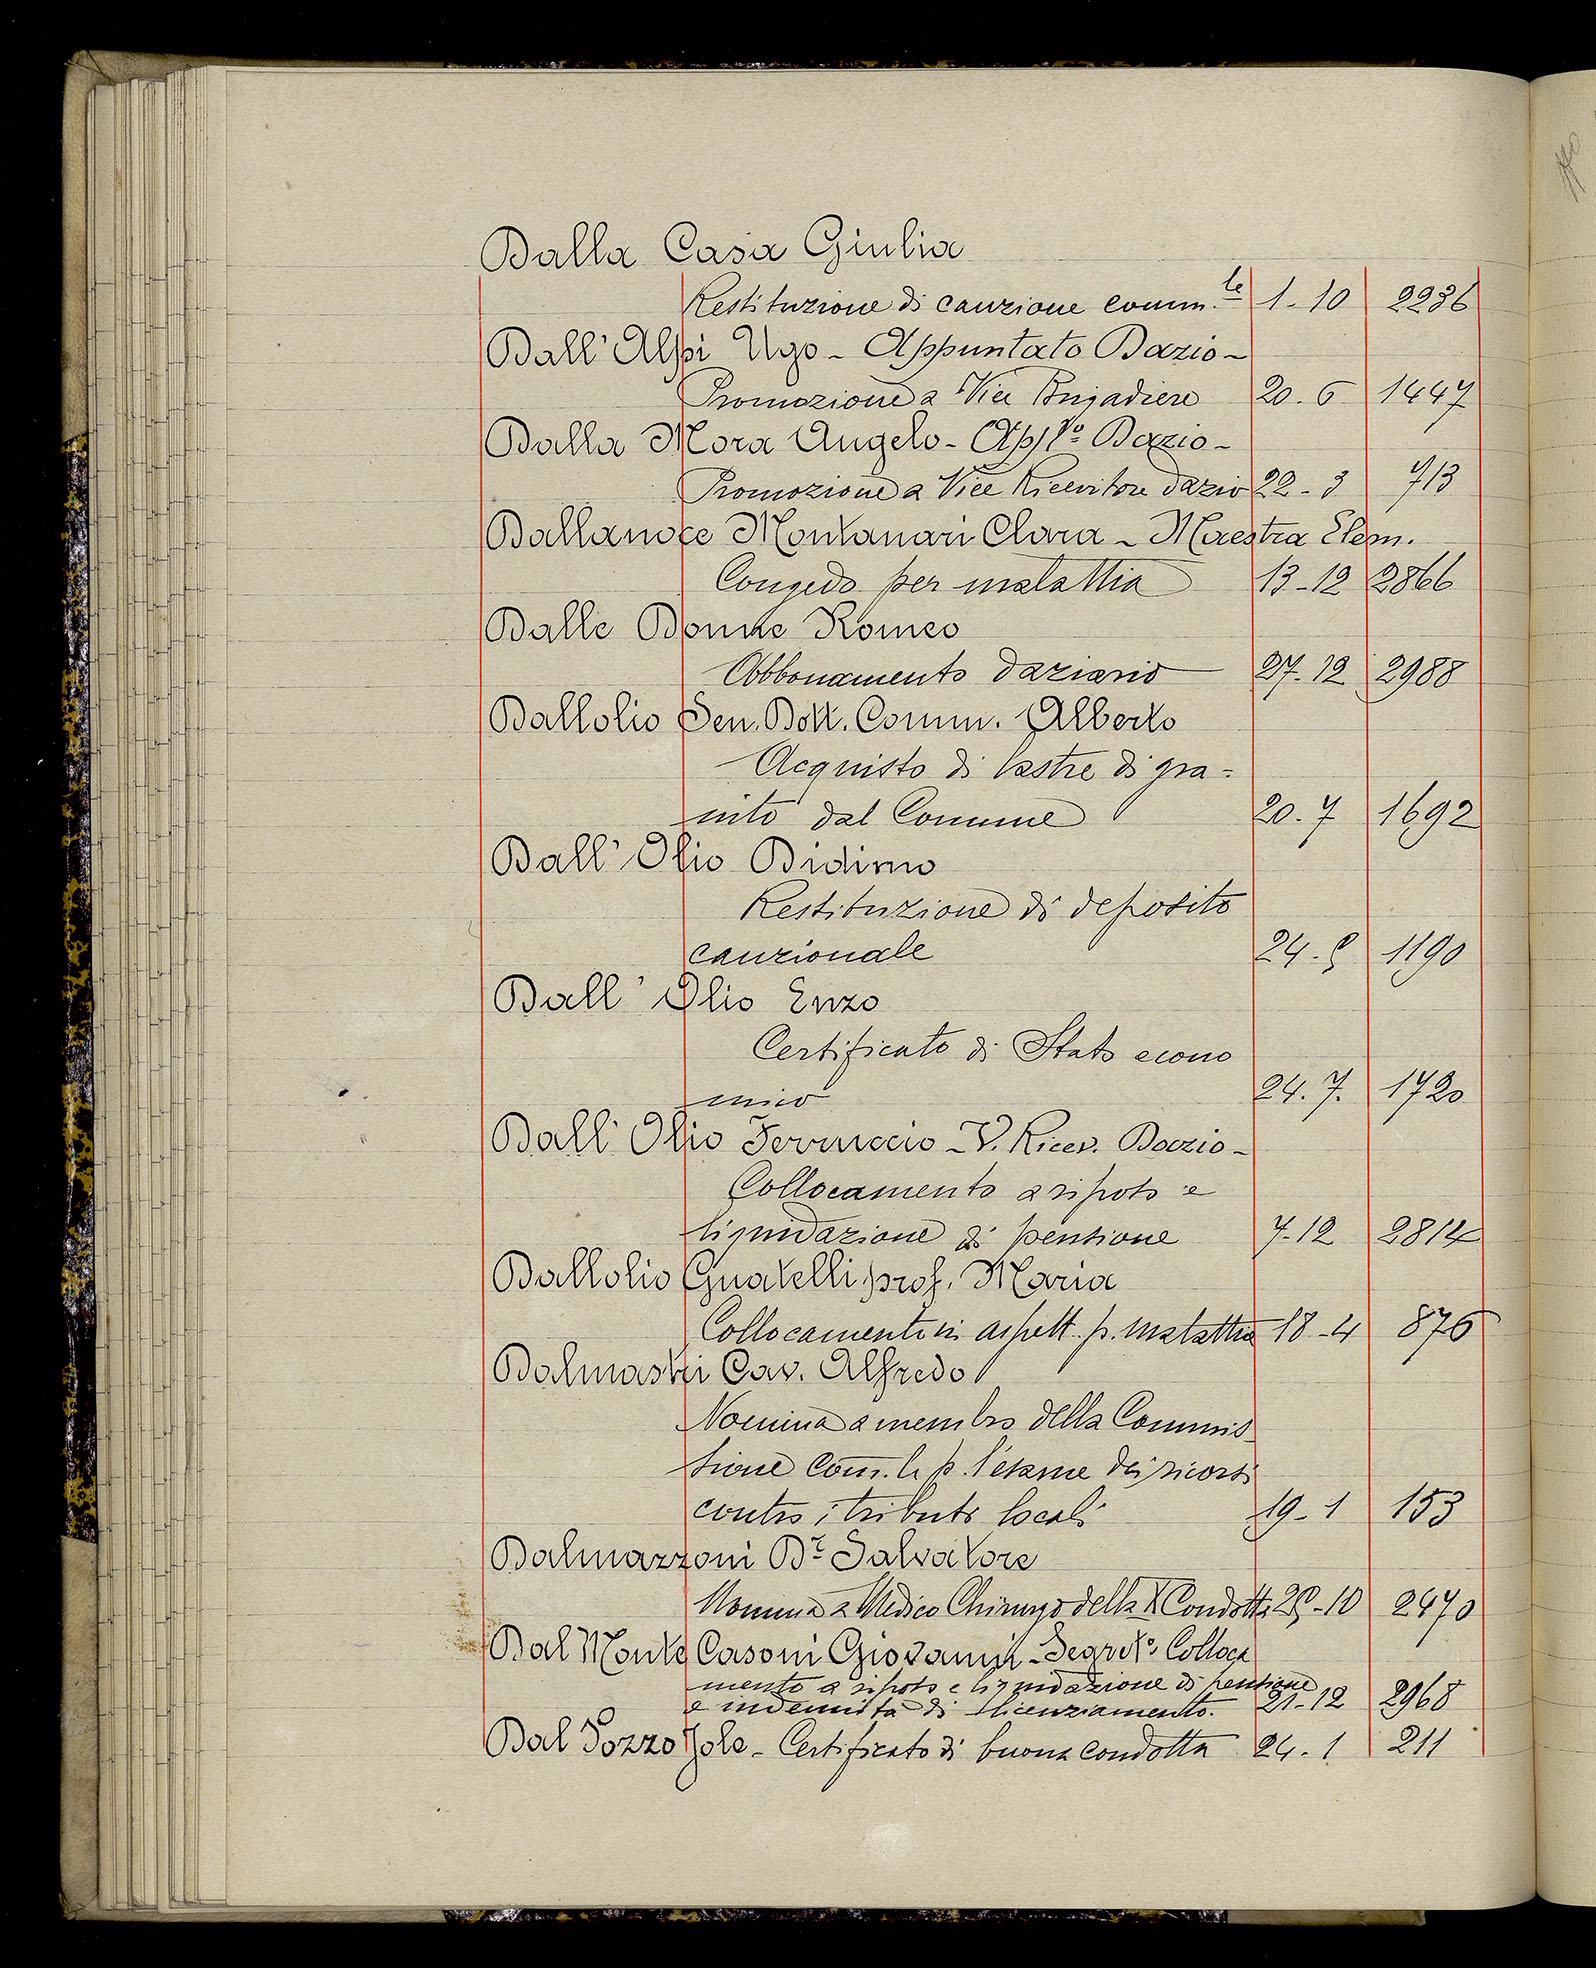 Dalla Casa Giulia
Restituzione di cauzione comm.le 1-10 2236
Dall'Alpi Ugo - Appuntato Dazio -
Promozione a Vice Brigadiere 20.6 1447
Dalla Mora Angelo - App.to Dazio -
Promozione a Vice Ricevitore dazio 22-3 713
Dallanoce Montanari Clara - Maestra Elem.
Congedo per malattia 13-12 2866
Dalle Donne Romeo
Abbonamento daziario 27-12 2988
Dallolio Sen. Dott. Comm. Alberto
Acquisto di lastre di gra=
nito dal Comune 20.7 1692
Dall'Olio Didimo
Restituzione di deposito
cauzionale 24.5 1190
Dall'Olio Enzo
Certificato di Stato econo
mico 24.7. 1720
Dall'Olio Ferruccio - V. Ricev. Dazio -
Collocamento a riposo e
liquidazione di pensione 7-12 2814
Dallolio Gnatelli prof. Maria
Collocamento in aspett. p. malattia 18-4 876
Dalmastri Cav. Alfredo
Nomina a membro della Commis
sione Com.le p. l'esame dei ricorsi
contro i tributi locali 19-1 153
Dalmazzoni Dr. Salvatore
Nomina a Medico Chirurgo della X Condotta 25-10 2470
Dal Monte Casoni Giovanni - Segret.o Colloca
mento a riposo e liquidazione di pensione
e indennità di licenziamento. 21-12 2968
Dal Pozzo Jole - Certificato di buona condotta 24.1 211